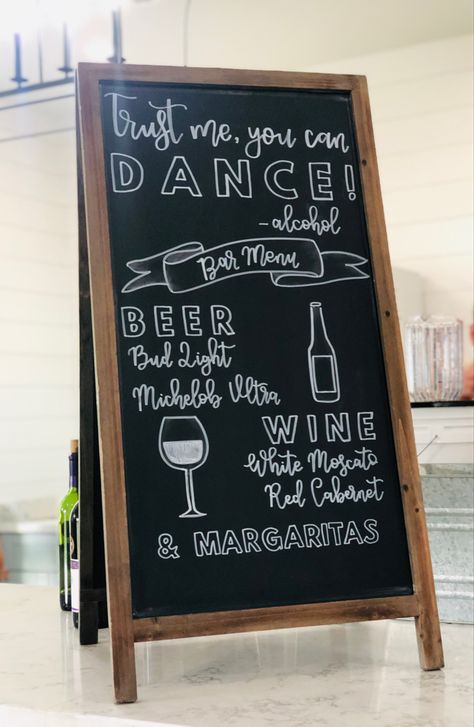 Trust me, you can
DANCE!
-alcohol
Bar Menu
BEER
Bud Light
Michelob Ultra
WINE
White Moscato
Red Cabernet
& MARGARITAS